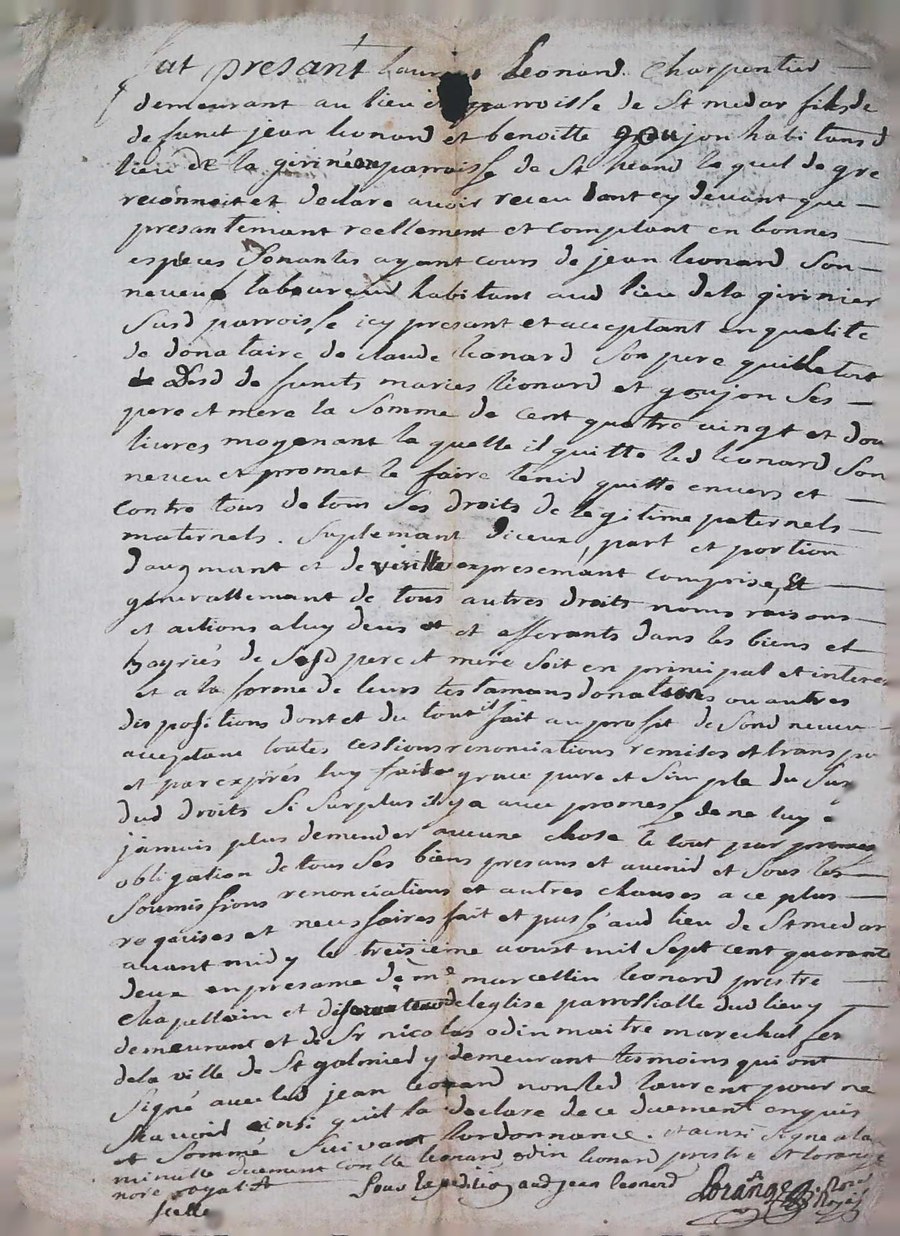 fut présant Leonard charpentier
demeurant au lieu et parroisse de St medar fils de
defunct jean leonard et benoitte goujon habitans d
lieu de la girinée parroisse de St heand le quel de gre
reconnoit et declare avoir receu tant cy devant que
presantemant reellement et comptant en bonnes
especes Sonantes ayant cours de jean leonard Son
neveu laboureur habitant aud lieu dela girinier
Susd parroisse icy present et acceptant en qualité
de donataire de claude leonard Son pere qui letoit
de defuncts maries leonard et goujon Ses
pere et mere la Somme de cent quatre vingt et dou
livres moyenant la quelle il quitte led leonard Son
neveu et promet le faire tenir quitte envers et
contre tous de tous Ses droits de legitime paternels
maternels. Suplemant diceux, part et portion
daugmant et de virille expresemant comprise, Et
generallemant de tous autres droits noms raisons
et actions a luy deus et efferants dans les biens et
hoyries de Sesd pere et mere Soit en principal et interes
et a la forme de leurs testamans donations ou autres
dispositions dont et du tout il fait au profit de Sond neveu
acceptant toutes cessions renonciations remises et transpo
et par exprés luy faide grace pure et Simple du Sur
dud droits Si Surplus il y a avec promesse de ne luy
jamais plus demender aucune chose le tout par promes
obligation de tous Ses biens presans et avenir et Sous les
Soumissions renonciations et autres clauses a ce plus
requises et necessaires fait et passé aud lieu de St medar
avant midy le treisieme aoust mil Sept cent quarante
deux en presance de me marcellin leonard prestre
chapellain et de leglise parrossialle dud lieu y
demeurant et de Sr nicolas odin maitre marechal fer
dela ville de St galmier y demeurant tesmoins qui ont
Signé avec led jean leonard non led laurent pour ne
Scavoir ainsi quil la declare de ce duement enquis
et Sommé Suivant lordonnance. et ainsi Signe a la
minutte duement conlle leonard odin leonard prestre et lorange
nore royal
Scelle
Sous lexpedition aud jean leonard
Lorange Nore Royal